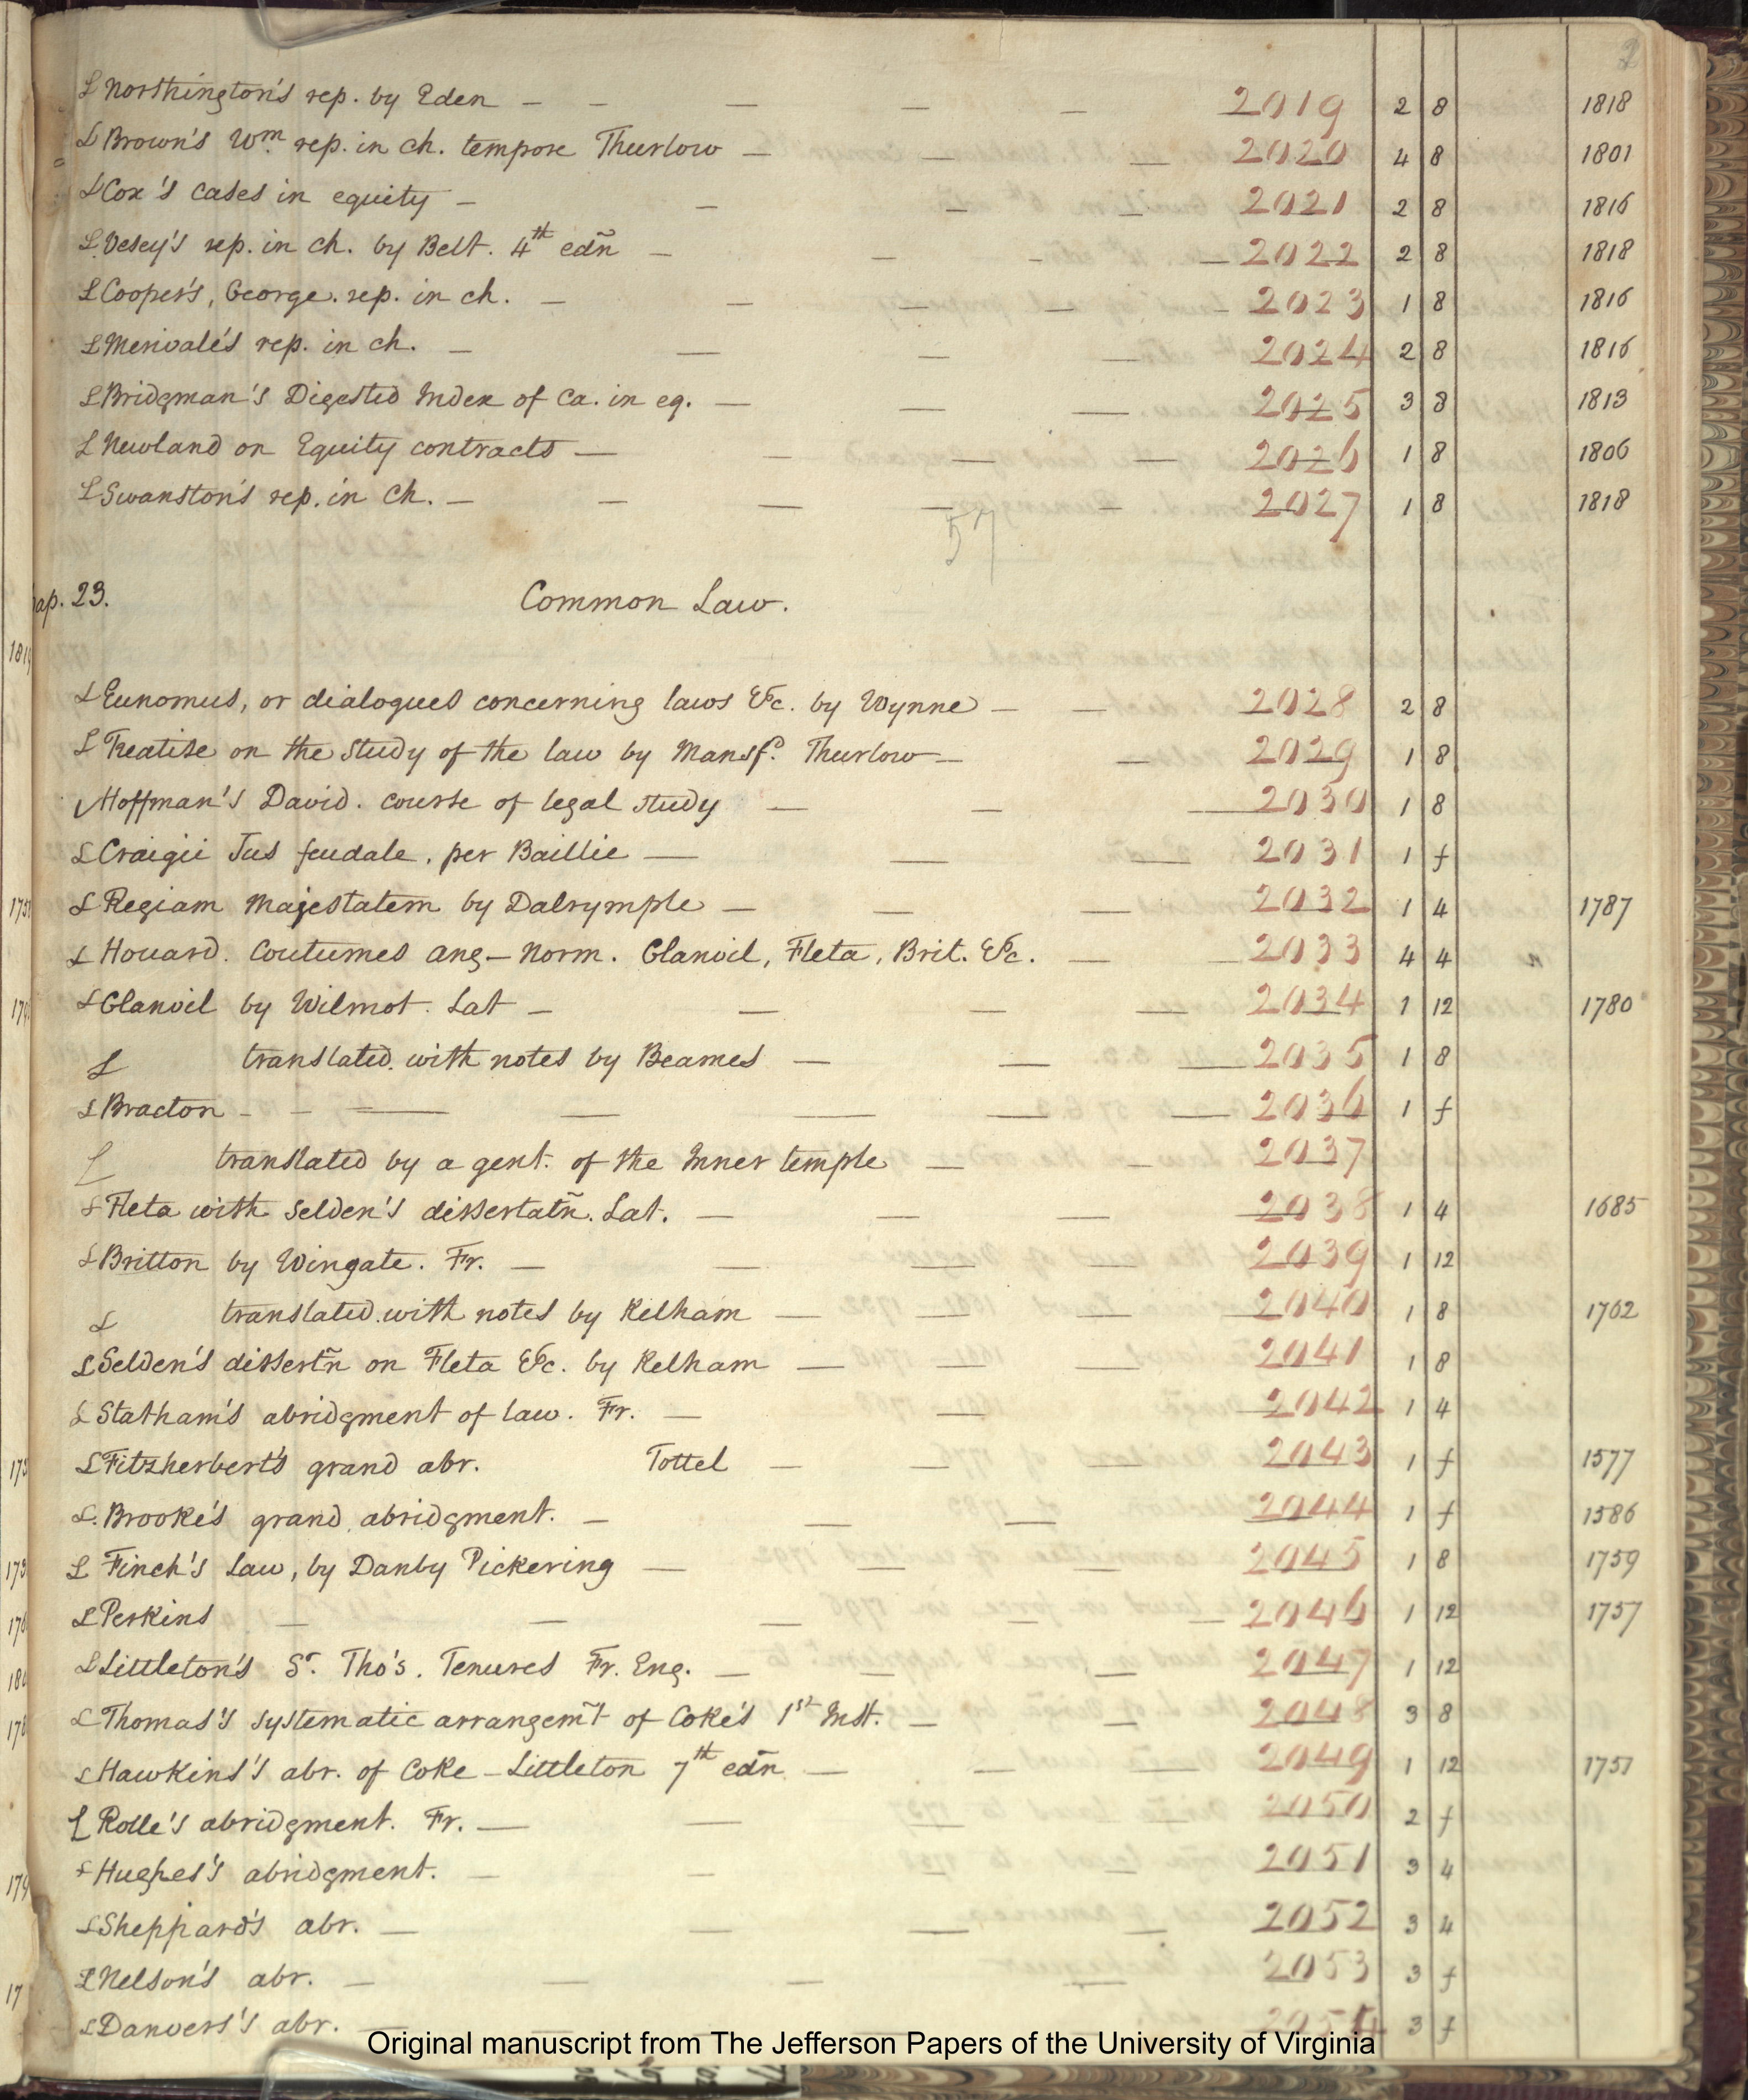 L Northington's rep. by Eden - - — — — 2019 2 8 1818
L Brown's Wm. rep. in ch. tempore Thurlow — — — 2020 4 8 1801
L Cox's cases in equity - — — — 2021 2 8 1816
L Vesey's rep. in ch. by Belt. 4th edñ — — — — 2022 2 8 1818
L Cooper's, George. rep. in ch. — — — — — 2023 1 8 1816
L Merivale's rep. in ch. — — — — 2024 2 8 1816
L Bridgman's Digested Index of Ca. in eq. — — — 2025 3 8 1813
L Newland on Equity contracts — — — — 2026 1 8 1806
L Swanston's rep. in Ch. — — — — — 2027 1 8 1818
57
ap. 23. Common Law.
L Eunomus, or dialogues concerning laws &c. by Wynne — — 2028 2 8
L Treatise on the study of the law by Mansfd. Thurlow — — 2029 1 8
Hoffman's David. course of legal study — — — 2030 1 8
L Craigii Jus feudale, per Baillie — — — 2031 1 f
L Regiam Majestatem by Dalrymple — — — 2032 1 4 1787
L Houard. Coutumes Ang-Norm. Glanvil, Fleta, Brit. &c. — — 2033 4 4
L Glanvil by Wilmot. Lat — — — — 2034 1 12 1780
L translated. with notes by Beames — — — 2035 1 8
L Bracton - - — — — — — 2036 1 f
L translated by a gent. of the Inner temple — — 2037
L Fleta with Selden's dissertatñ. Lat. — — — 2038 1 4 1685
L Britton by Wingate. Fr. — — — — 2039 1 12
L translated. with notes by Kelham — — — 2040 1 8 1762
L Selden's dissertñ on Fleta &c. by Kelham — — — 2041 1 8
L Statham's abridgment of law. Fr. — — 2042 1 4
L Fitzherbert's grand abr. Tottel — — — 2043 1 f 1577
L. Brooke's grand abridgment. — — — 2044 1 f 1586
L Finch's Law, by Danby Pickering — — — 2045 1 8 1759
L Perkins — — — — — 2046 1 12 1757
L Littleton's Sr. Tho's. Tenures Fr. Eng. — — — 2047 1 12
L Thomas's systematic arrangem̃t of Coke's 1st Inst. — — 2048 3 8
L Hawkins's abr. of Coke-Littleton 7th edñ — — — 2049 1 12 1751
L Rolle's abridgment. Fr. — — — 2050 2 f
L Hughes's abridgment. — — — 2051 3 4
L Sheppard's abr. — — — — 2052 3 4
L Nelson's abr. — — — — 2053 3 f
L Danvers's abr. — 2054 3 f
Original manuscript from The Jefferson Papers of the University of Virginia